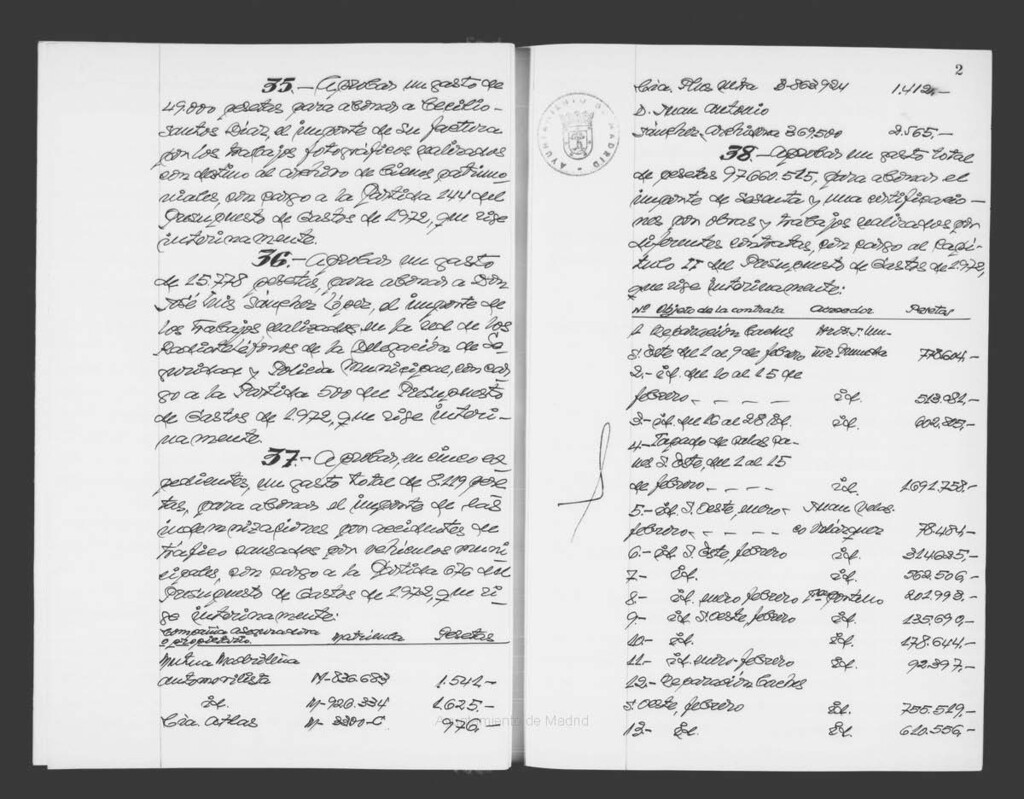 35.- Aprobar un gasto de
49.000 pesetas para abonar a Cecilio
Santos Díaz, el importe de su factura
por los trabajos fotográficos realizados
con destino al archivo de bienes patrimo-
niales, con cargo a la Partida 244 del
Presupuesto de Gastos de 1972, que rige
interinamente.
36.- Aprobar un gasto
de 15.778 pesetas, para abonar a Don
José Luis Sánchez López, el importe de
los trabajos realizados en la red de los
Radioteléfonos de la Delegación de Se-
guridad y Policía Municipal, con car-
go a la Partida 500 del Presupuesto
de Gastos de 1.972, que rige interi-
namente.
37.- Aprobar, en cinco ex-
pedientes, un gasto total de 8.119 pese-
tas, para abonar el importe de las
indemnizaciones por accidentes de
tráfico causados por vehículos muni-
cipales, con cargo a la Partida 676 del
Presupuesto de Gastos de 1972, que ri-
ge interinamente:
Compañía aseguradora
o propietario Matrícula Pesetas
Mutua Madrileña
Automovilista M-836.683 1.541,-
id. M-920.334 1.625,-
Cía. Atlas 976,-
Ayuntamiento de Madrid
2
Cía. Plus Ultra B-863924 1.412,-
D. Juan Antonio
Sánchez 369.500 2.565,-
AYUNTAMIENTO DE MADRID
38.- Aprobar un gasto total
de pesetas 97.660.515, para abonar el
importe de sesenta y una certificacio-
nes por obras y trabajos realizados por
diferentes contratas, con cargo al Capí-
tulo II del Presupuesto de Gastos de 1972,
que rige interinamente:
Nº Objeto de la contrata Acreedor Pesetas
1. Reparación baches
S. Este del 1 al 9 de febrero 778.604,-
2.- id. del 10 al 15 de
febrero - - - - - id. 513.981,-
3.- id. del 16 al 28 id. id.
4.- Tapado de calas za-
nas S. Este, del 1 al 15
de febrero - - - - id. 1.691.758.-
5.- Id. S. Oeste, enero- Juan Velas-
febrero - - - - - co Velázquez 78.484,-
6.- Id. S. Este, febrero id. 314.685,-
7.- Id. id. 562.506,-
8.- Id. enero febrero 201.993.-
9.- id. S. Oeste febrero id. 135.690,-
10.- id. id. 178.644.-
11.- id. enero-febrero id. 92.397,-
12.- Reparación baches
S. Oeste, febrero id. 755.519,-
13.- Id. id. 610.556,-